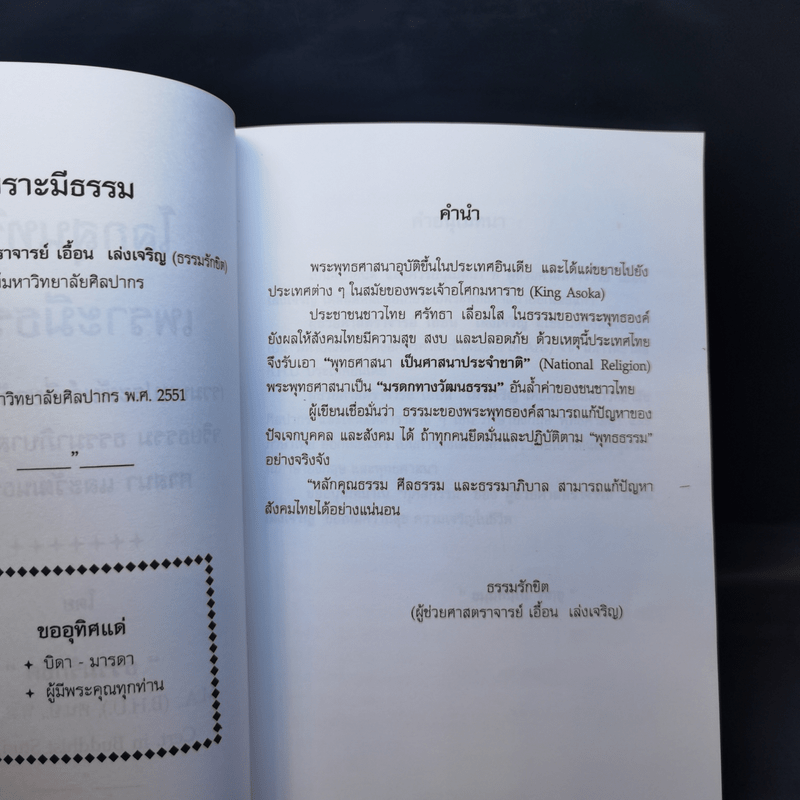 ราะมีธรรม
ราจารย์ เอื้อน เล่งเจริญ (ธรรมรักขิต)
มหาวิทยาลัยศิลปากร
าวิทยาลัยศิลปากร พ.ศ. 2551
”
ขออุทิศแด่
บิดา - มารดา
ผู้มีพระคุณทุกท่าน
คำนำ
พระพุทธศาสนาอุบัติขึ้นในประเทศอินเดีย และได้แผ่ขยายไปยัง
ประเทศต่าง ๆ ในสมัยของพระเจ้าอโศกมหาราช (King Asoka)
ประชาชนชาวไทย ศรัทธา เลื่อมใส ในธรรมของพระพุทธองค์
ยังผลให้สังคมไทยมีความสุข สงบ และปลอดภัย ด้วยเหตุนี้ประเทศไทย
จึงรับเอา “พุทธศาสนา เป็นศาสนาประจำชาติ” (National Religion)
พระพุทธศาสนาเป็น “มรดกทางวัฒนธรรม” อันล้ำค่าของชนชาวไทย
ผู้เขียนเชื่อมั่นว่า ธรรมะของพระพุทธองค์สามารถแก้ปัญหาของ
ปัจเจกบุคคล และสังคม ได้ ถ้าทุกคนยึดมั่นและปฏิบัติตาม “พุทธธรรม”
อย่างจริงจัง
“หลักคุณธรรม ศีลธรรม และธรรมาภิบาล สามารถแก้ปัญหา
สังคมไทยได้อย่างแน่นอน
ธรรมรักขิต
(ผู้ช่วยศาสตราจารย์ เอื้อน เล่งเจริญ)